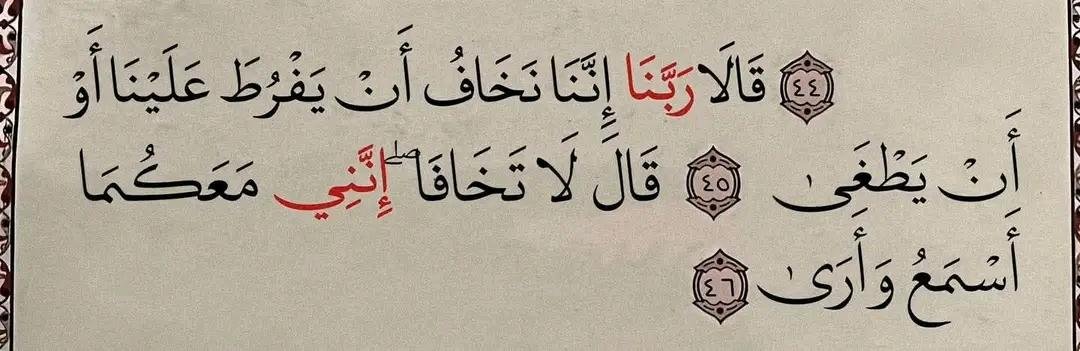 ﴿٤٤﴾ قَالَا رَبَّنَا إِنَّنَا نَخَافُ أَنْ يَفْرُطَ عَلَيْنَا أَوْ
أَنْ يَطْغَىٰ ﴿٤٥﴾ قَالَ لَا تَخَافَا ۖ إِنَّنِي مَعَكُمَا
أَسْمَعُ وَأَرَىٰ ﴿٤٦﴾